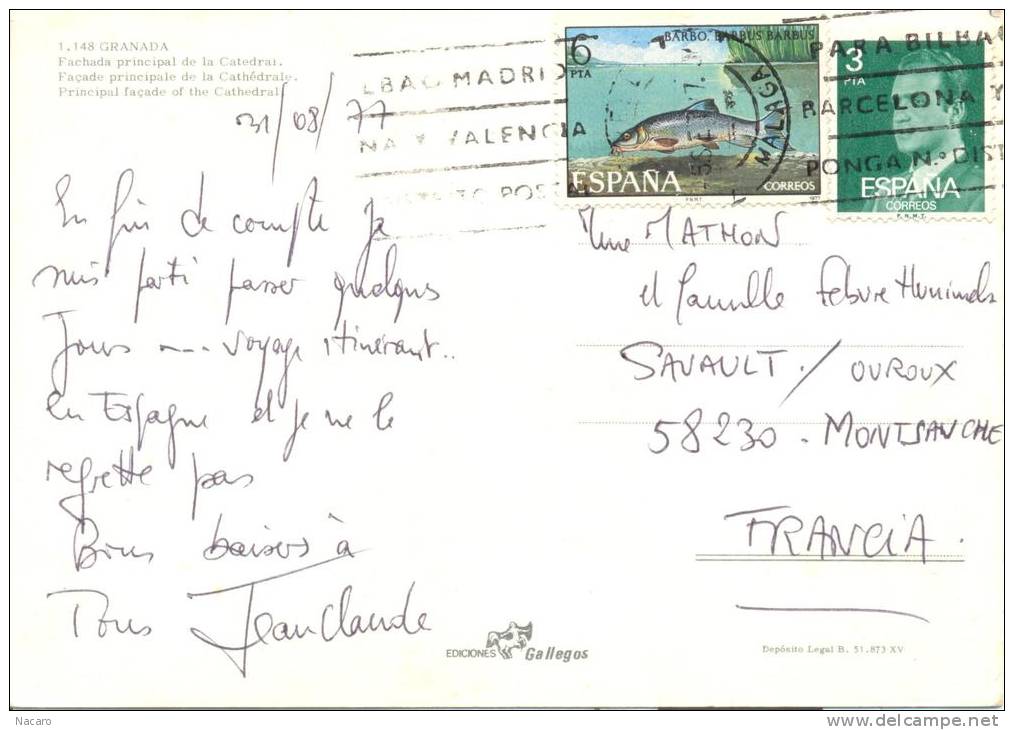 1.148 GRANADA
Fachada principal de la Catedral.
Façade principale de la Cathédrale.
Principal façade of the Cathedral
31/08/77
En fin de compte je
suis parti passer quelques
Jours ---- voyage itinérant..
en Espagne et je ne le
regrette pas
Bons baisers à
Tous JeanClaude
LBAO MADRID
NA Y VALENCIA
POSTAL
6
PTA
BARBO. BARBUS BARBUS
ESPAÑA
CORREOS
F.N.M.T.
1977
MALAGA
3
PTA
ESPAÑA
CORREOS
F.N.M.T.
PARA BILBAO
BARCELONA Y
PONGA N.º DIST
Mme MATHON
et famille Febvre
SAVAULT / OUROUX
58230 - MONTSAUCHE
FRANCIA.
EDICIONES Gallegos
Depósito Legal B. 51.873 XV
Nacaro
delcampe.net